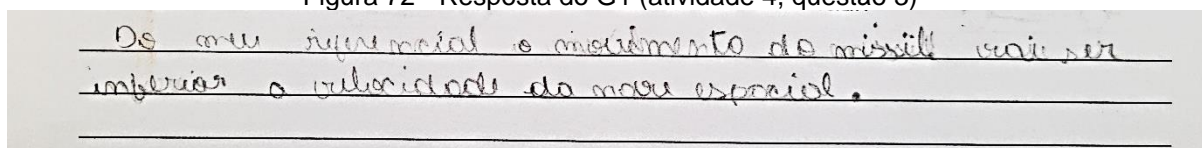 Figura 72 - Resposta do G1 (atividade 4, questão 8)
Do meu referencial o movimento do missíl vai ser
inferior a velocidade da nave espacial.